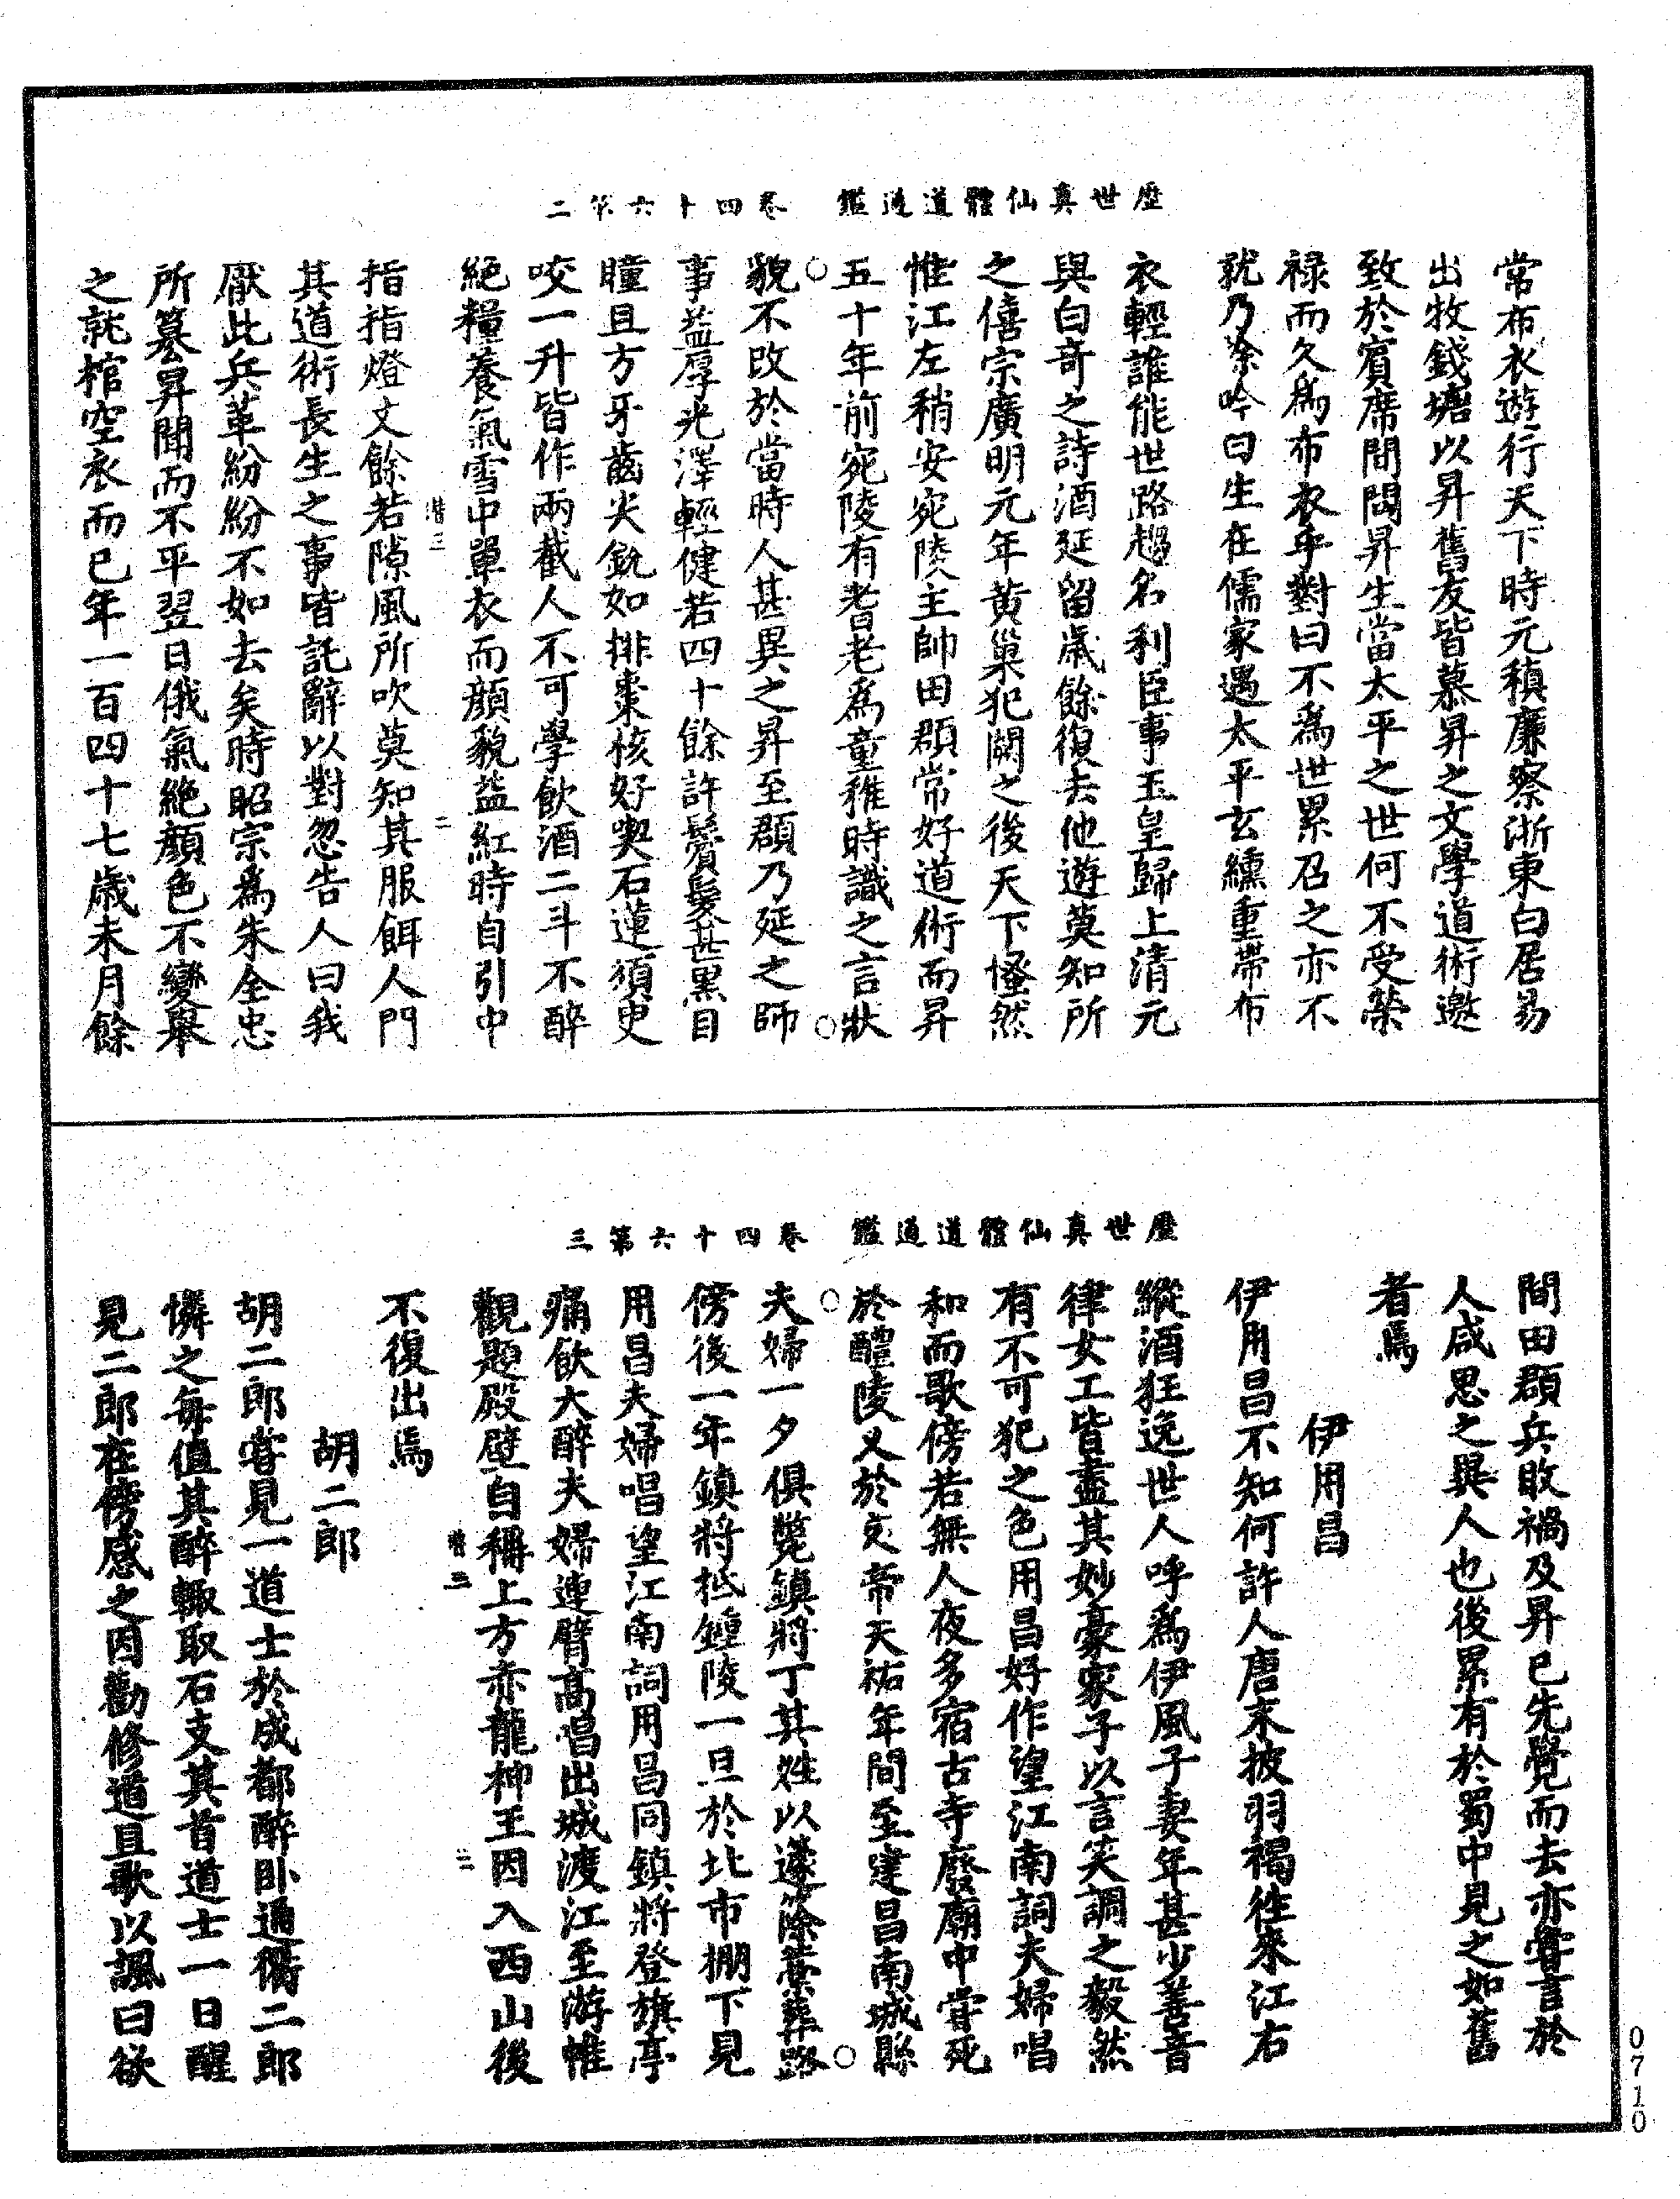 歷世真仙體道通鑑　卷四十六第二
常布衣遊行天下時元稹廉察浙東白居易
出牧錢塘以昇舊友皆慕昇之文學道術邀
致於賓席間問昇生當太平之世何不受榮
祿而久為布衣乎對曰不為世累召之亦不
就乃餘吟曰生在儒家遇太平玄纁重帶布
衣輕誰能世路趨名利臣事玉皇歸上清元
與白奇之詩酒延留歲餘復去他遊莫知所
之僖宗廣明元年黃巢犯闕之後天下騷然
惟江左稍安宛陵主帥田頵常好道術而昇
五十年前宛陵有耆老為童稚時識之言狀
貌不改於當時人甚異之昇至頵乃延之師
事益厚光澤輕健若四十餘許鬢髮甚黑目
瞳且方牙齒尖銳如排棗核好喫石蓮須臾
咬一升皆作兩截人不可學飲酒二斗不醉
絕糧養氣雪中單衣而顏貌益紅時自引中
指指燈丈餘若隙風所吹莫知其服餌人門
其道術長生之事皆託辭以對忽告人曰我
厭此兵革紛紛不如去矣時昭宗為朱全忠
所篡昇聞而不平翌日俄氣絕顏色不變舉
之就棺空衣而已年一百四十七歲未月餘
歷世真仙體道通鑑　卷四十六第三
間田頵兵敗禍及昇已先覺而去亦嘗言於
人咸思之異人也後累有於蜀中見之如舊
者焉
伊用昌
伊用昌不知何許人唐末披羽褐往來江右
縱酒狂逸世人呼為伊風子妻年甚少善音
律女工皆盡其妙豪家子以言笑調之毅然
有不可犯之色用昌好作望江南詞夫婦唱
和而歌傍若無人夜多宿古寺廢廟中嘗死
於醴陵又於哀帝天祐年間至建昌南城縣
夫婦一夕俱斃鎮將丁其姓以蘧篨藁葬路
傍後一年鎮將抵鍾陵一旦於北市棚下見
用昌夫婦唱望江南詞用昌同鎮將登旗亭
痛飲大醉夫婦連臂高唱出城渡江至游帷
觀題殿壁自稱上方赤龍神王因入西山後
不復出焉
胡二郎
胡二郎嘗見一道士於成都醉臥通衢二郎
憐之每值其醉輒取石支其首道士一日醒
見二郎在傍感之因勸修道且歌以諷曰欲
0710